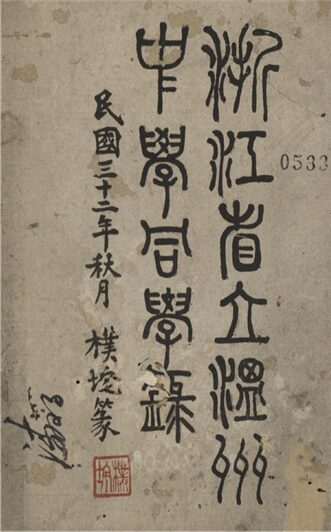 浙江省立溫州
中學同學錄
民國三十二年秋月 樸垞篆
0533
樸垞